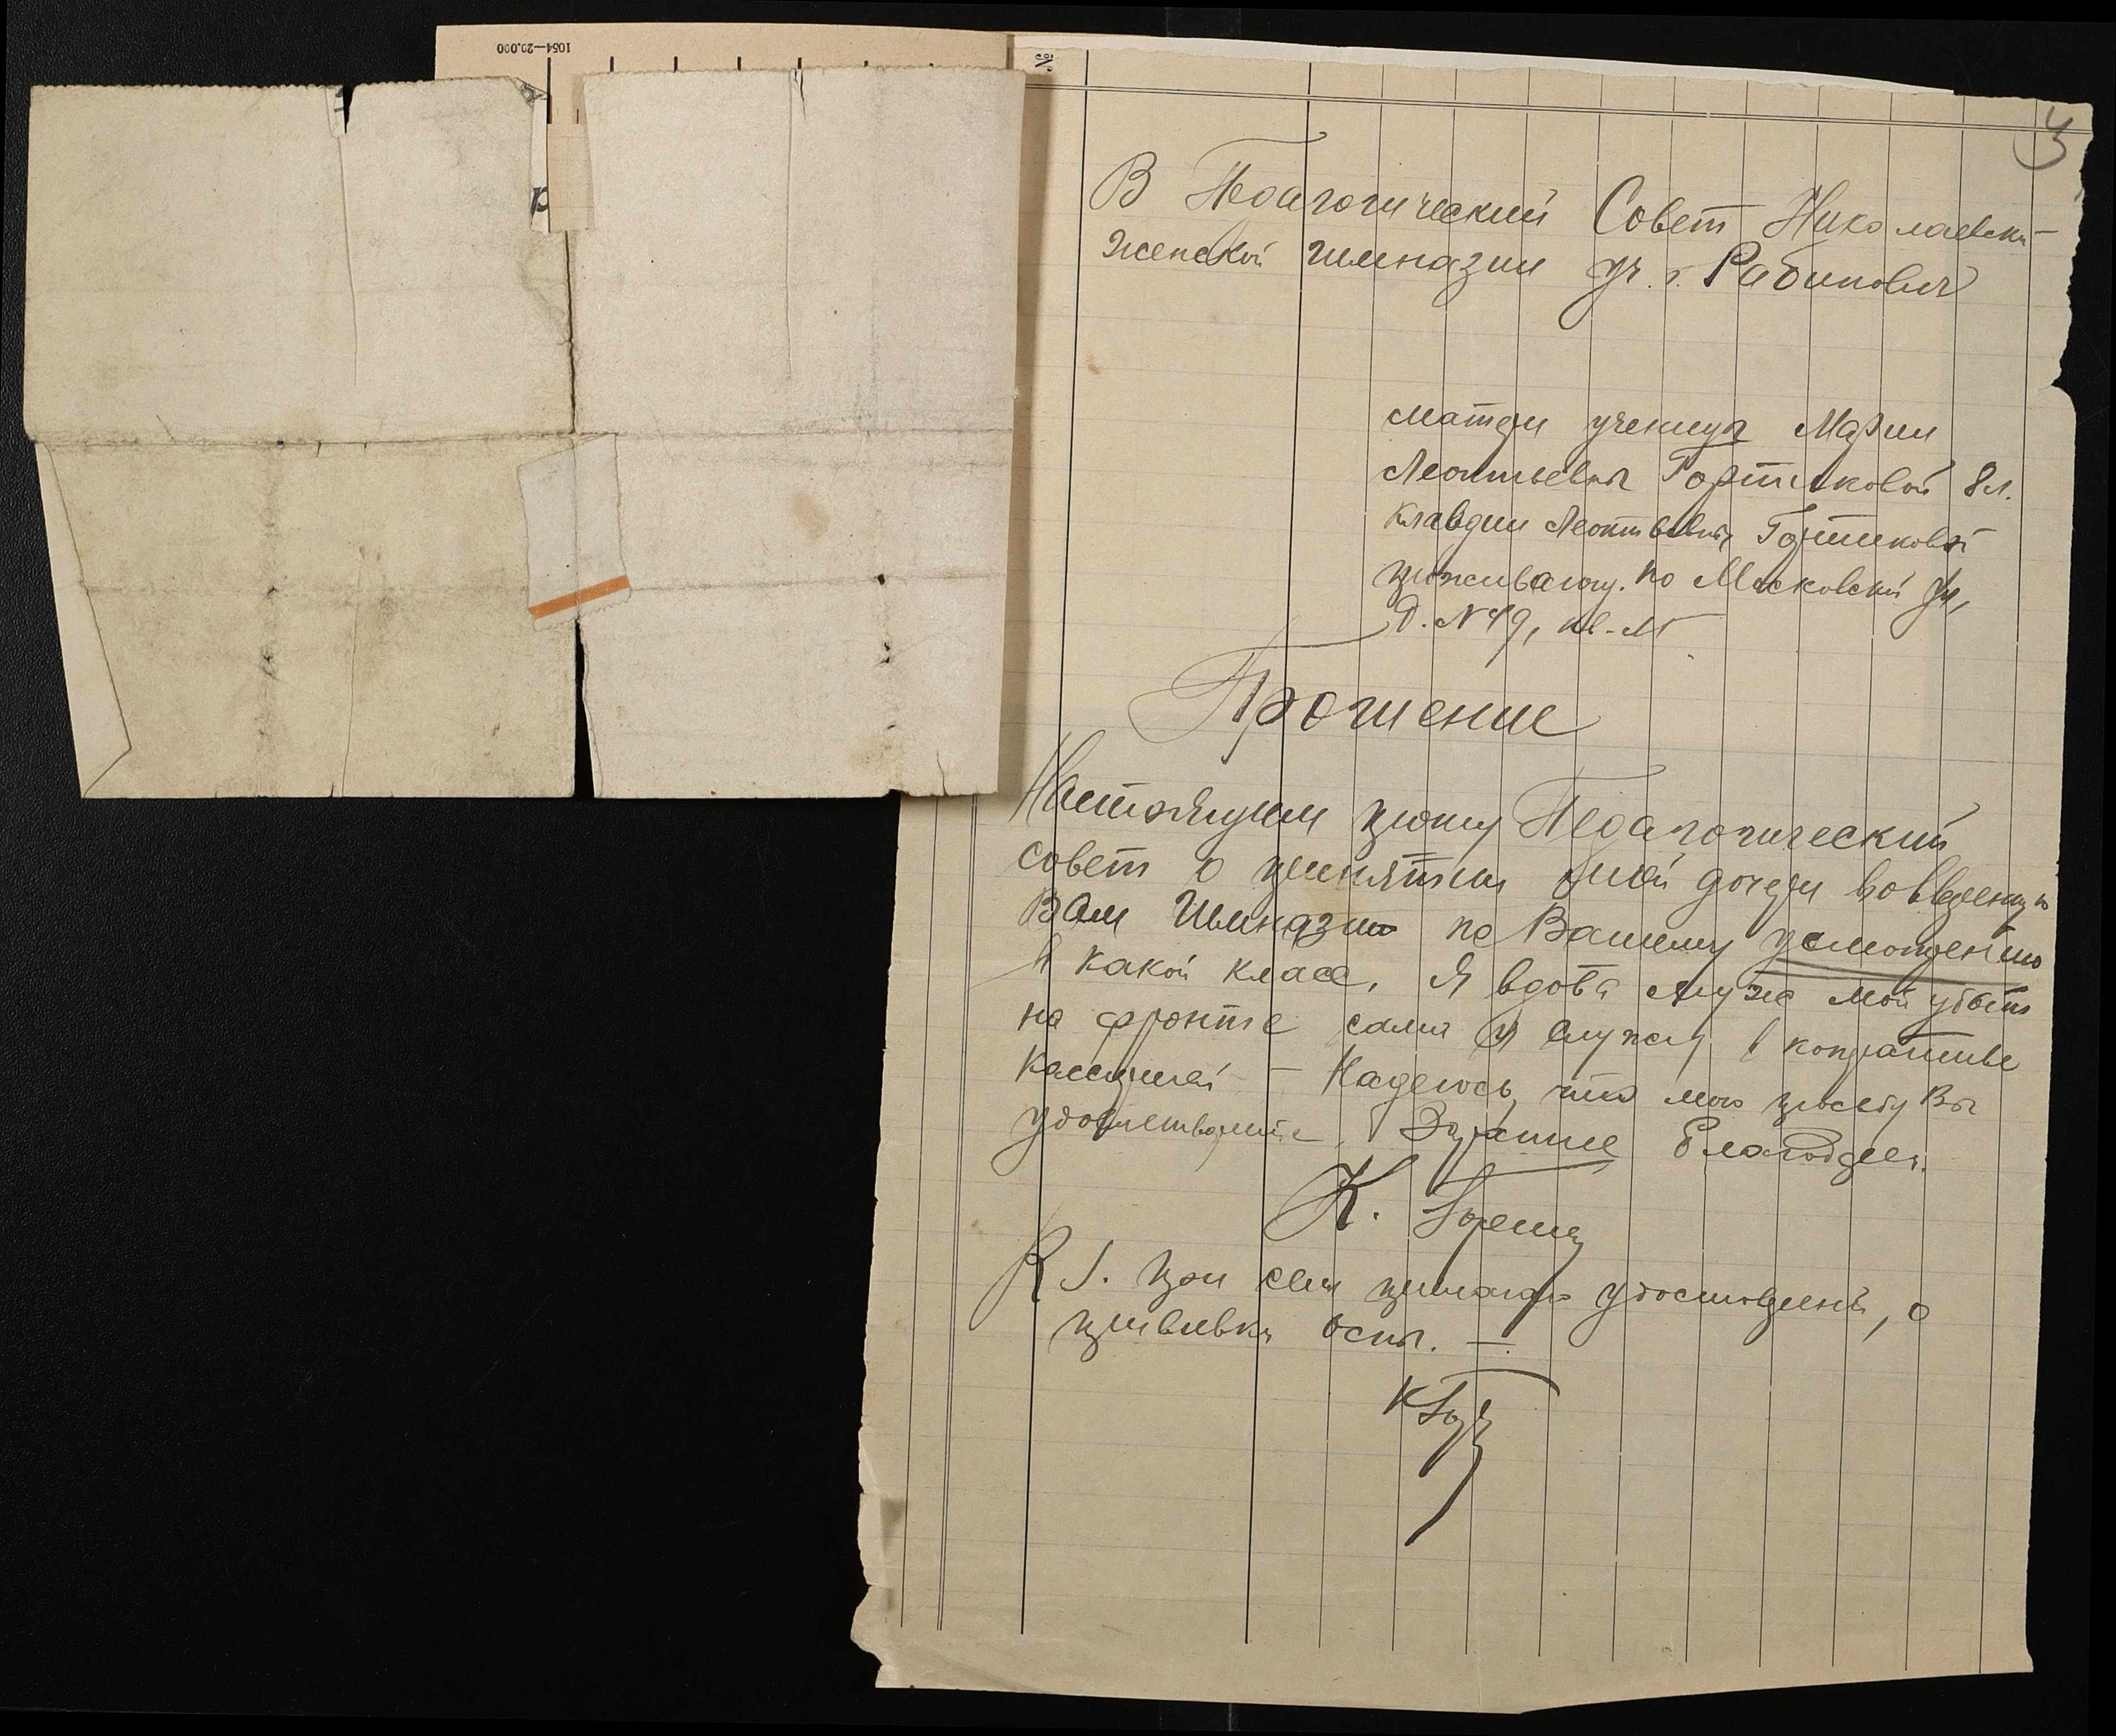 1054—20.000
№
3
В Педагогический Совет Николаевски-
женской гимназии уч. г. Рабинович
матери ученицы Марии
Леонтьевны Гортиковой 8 л.
Клавдии Леонтьевны Гортиковой
прожывающ. по Московской ул,
д. № 49, кв.
Прошение
Настоящим прошу Педагогический
совет о принятии моей дочери во вверенную
Вам Гимназию по Вашему усмотрению
в какой класс. Я вдова муж мой убит
на фронте сама я служу в коперативе
Кассиршей – Надеюсь, что мою просьбу Вы
удовлетворите. Заранее благодарен.
К.
P S. при сем прилагаю удостоверение, о
прививки оспы. —